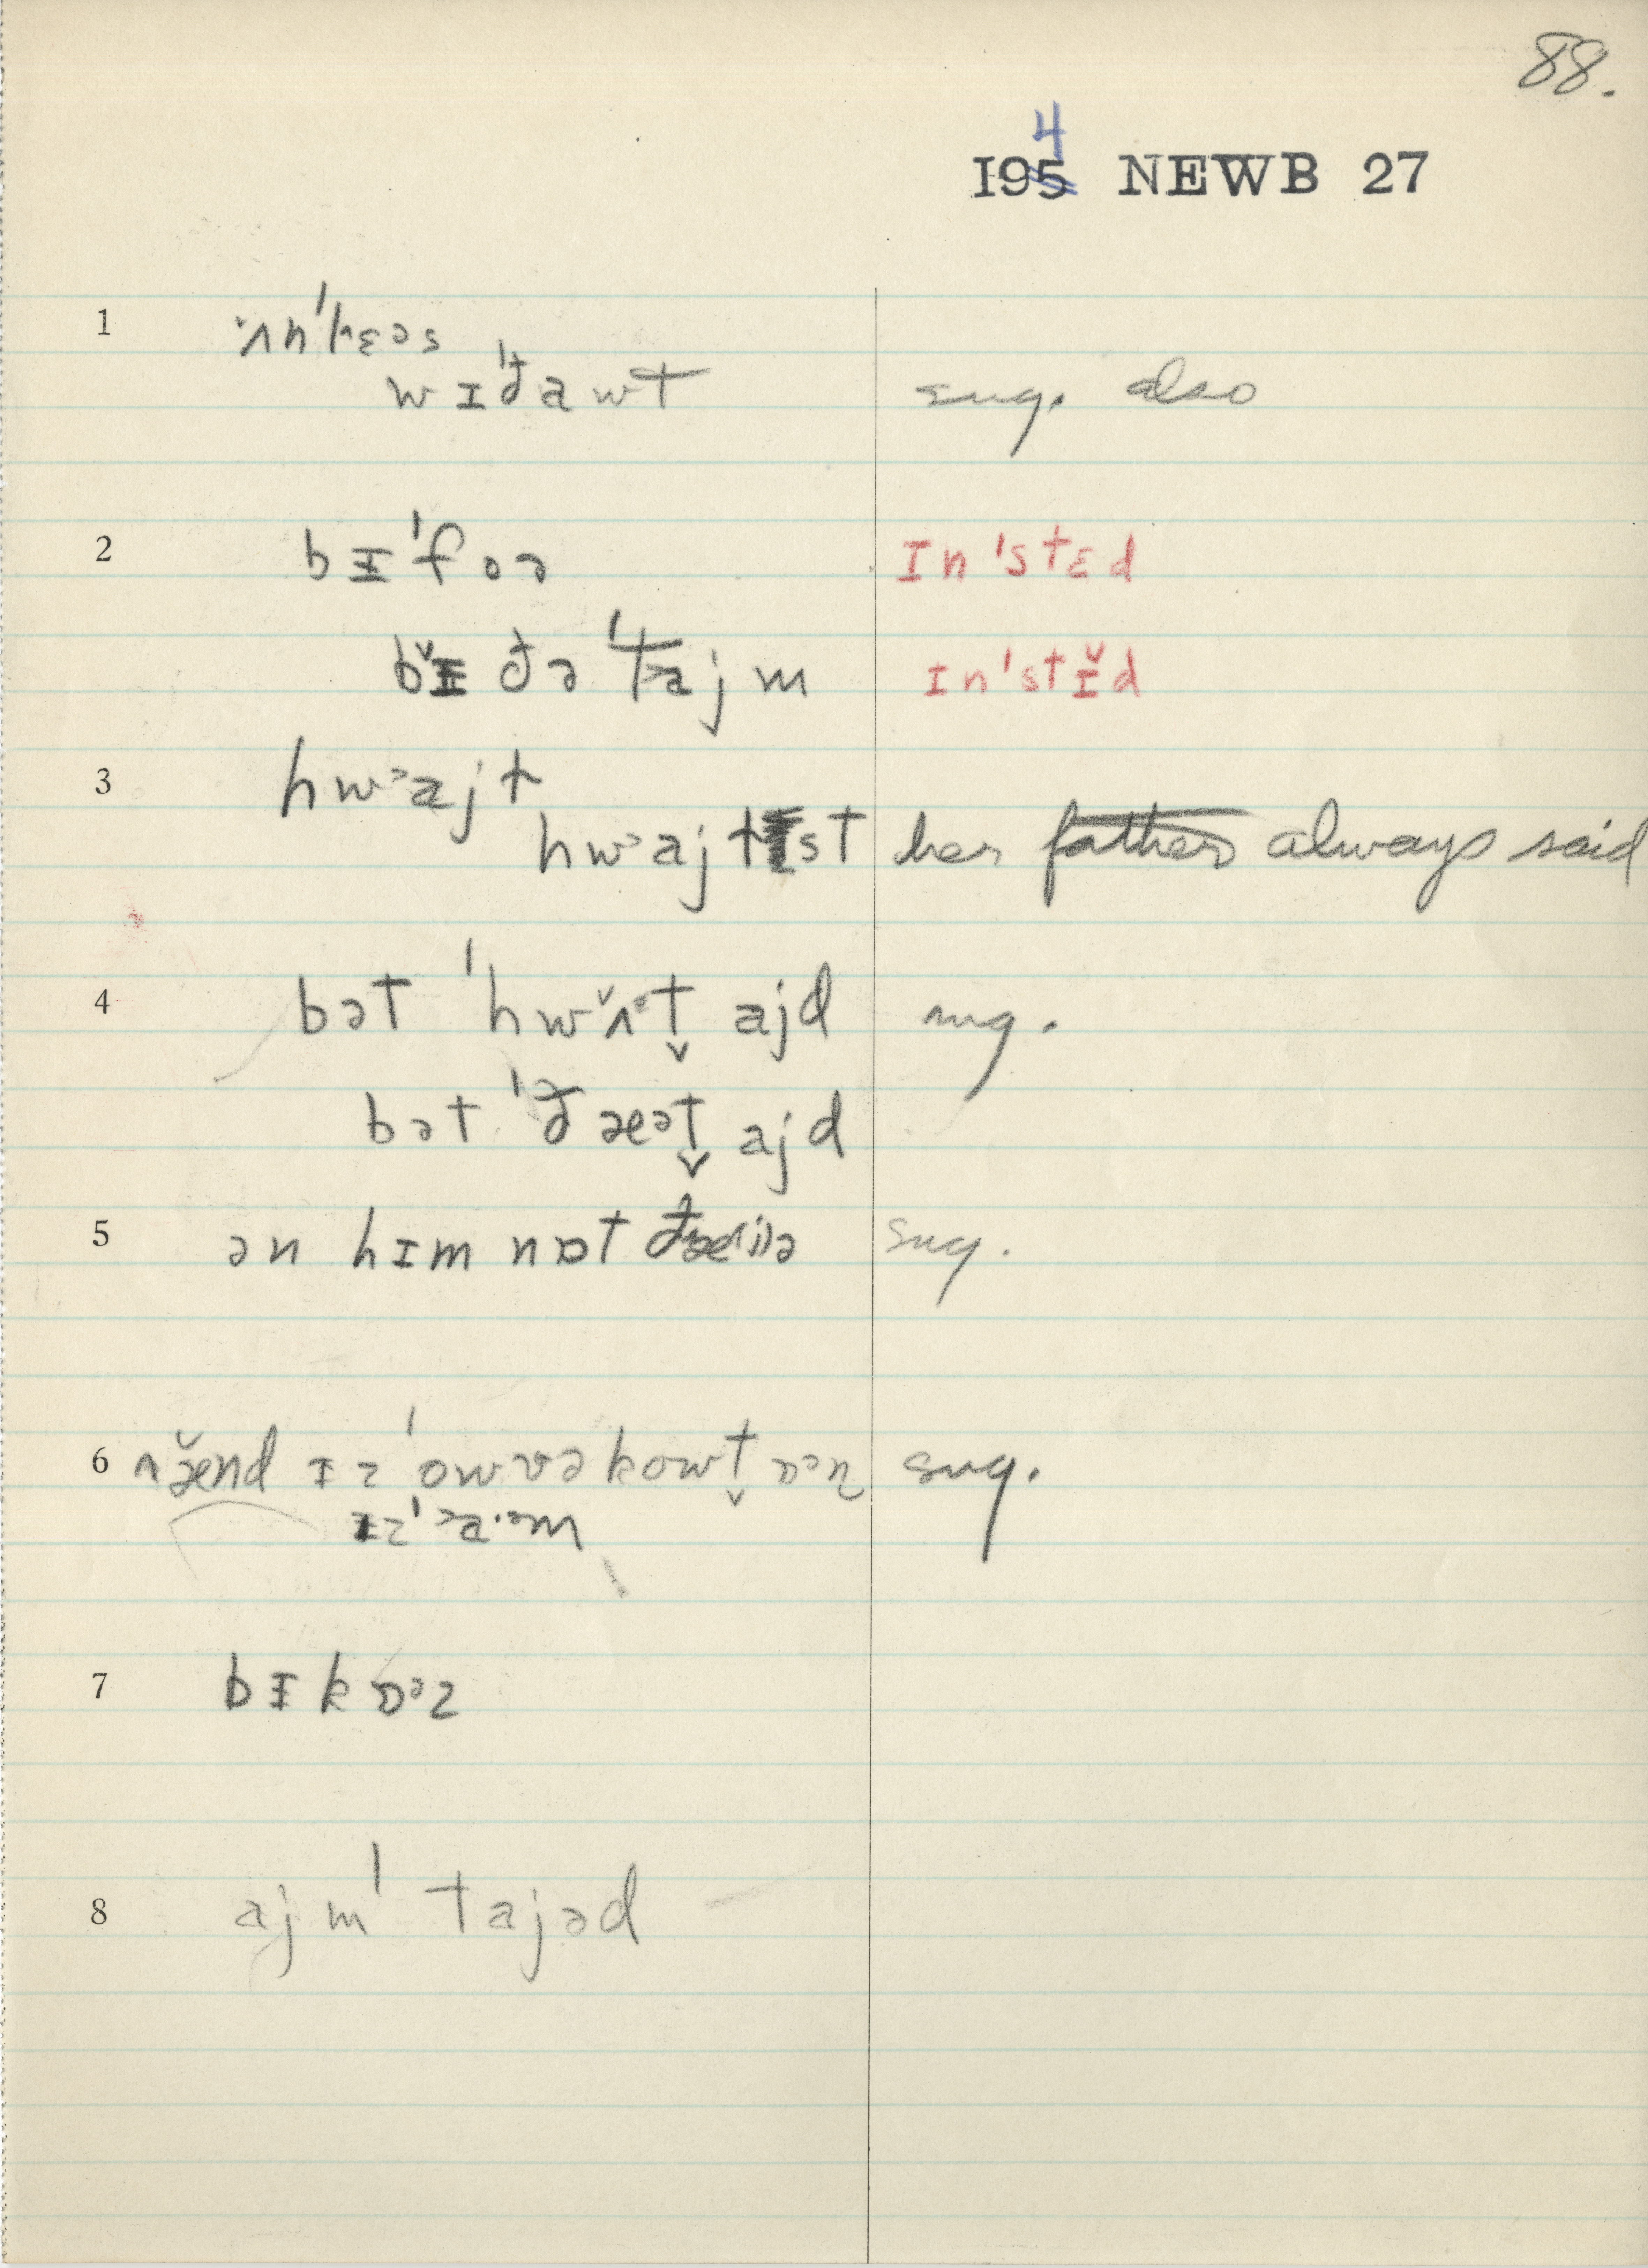 88.
4
I95 NEWB 27
1 ʌ̌n'lɛəs
wɪ'đawt sug. also
2 bɪ'foə ɪn'stɛd
bɪ̌ đə 'tajm ɪn'stɪ̌d
3 hwᵊajt
hwᵊajtɪst her father always said
4 bət 'hwʌ̌ᵊt̬ ajd sug.
bət 'đæət̬ ajd
5 ən hɪm nɒt sug.
6 ænd ɪz 'owvəkowt̬ ɒᵊn sug.
ɪz 'ᵊa·ᵊm
7 bɪkɒᵊz
8 ajm 'tajəd